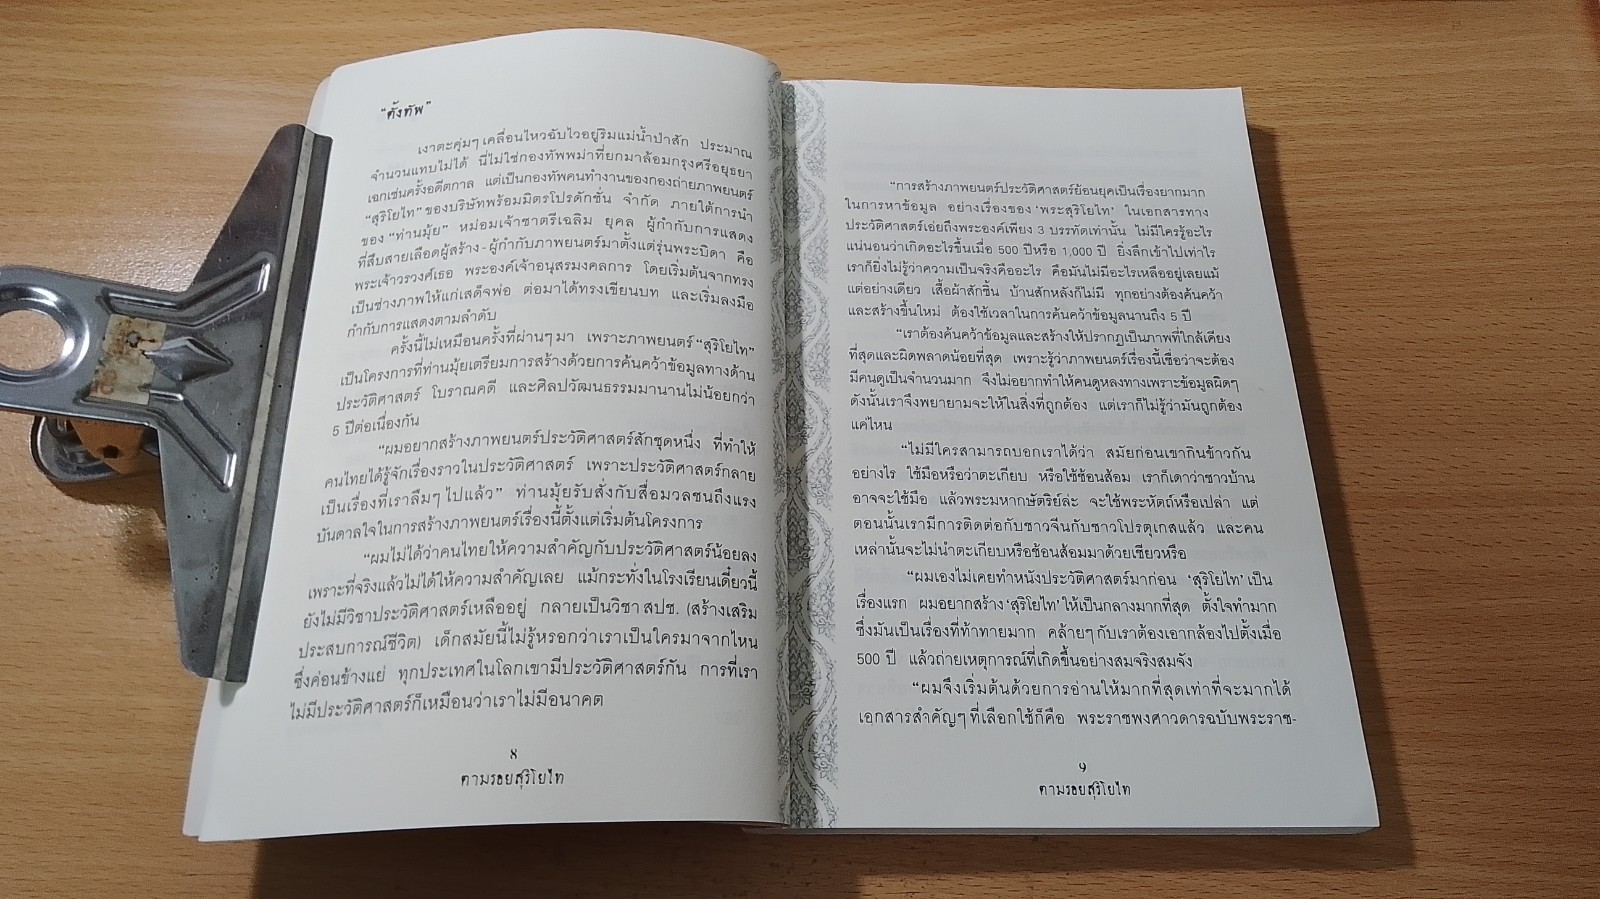 “ตั้งทัพ”
เงาตะคุ่มๆ เคลื่อนไหวฉับไวอยู่ริมแม่น้ำป่าสัก ประมาณ
จำนวนแทบไม่ได้ นี่ไม่ใช่กองทัพพม่าที่ยกมาล้อมกรุงศรีอยุธยา
เฉกเช่นครั้งอดีตกาล แต่เป็นกองทัพคนทำงานของกองถ่ายภาพยนตร์
“สุริโยไท” ของบริษัทพร้อมมิตรโปรดักชั่น จำกัด ภายใต้การนำ
ของ “ท่านมุ้ย” หม่อมเจ้าชาตรีเฉลิม ยุคล ผู้กำกับการแสดง
ที่สืบสายเลือดผู้สร้าง-ผู้กำกับภาพยนตร์มาตั้งแต่รุ่นพระบิดา คือ
พระเจ้าวรวงศ์เธอ พระองค์เจ้าอนุสรมงคลการ โดยเริ่มต้นจากทรง
เป็นช่างภาพให้แก่เสด็จพ่อ ต่อมาได้ทรงเขียนบท และเริ่มลงมือ
กำกับการแสดงตามลำดับ
ครั้งนี้ไม่เหมือนครั้งที่ผ่านๆ มา เพราะภาพยนตร์ “สุริโยไท”
เป็นโครงการที่ท่านมุ้ยเตรียมการสร้างด้วยการค้นคว้าข้อมูลทางด้าน
ประวัติศาสตร์ โบราณคดี และศิลปวัฒนธรรมมานานไม่น้อยกว่า
5 ปีต่อเนื่องกัน
“ผมอยากสร้างภาพยนตร์ประวัติศาสตร์สักชุดหนึ่ง ที่ทำให้
คนไทยได้รู้จักเรื่องราวในประวัติศาสตร์ เพราะประวัติศาสตร์กลาย
เป็นเรื่องที่เราลืมๆ ไปแล้ว” ท่านมุ้ยรับสั่งกับสื่อมวลชนถึงแรง
บันดาลใจในการสร้างภาพยนตร์เรื่องนี้ตั้งแต่เริ่มต้นโครงการ
“ผมไม่ได้ว่าคนไทยให้ความสำคัญกับประวัติศาสตร์น้อยลง
เพราะที่จริงแล้วไม่ได้ให้ความสำคัญเลย แม้กระทั่งในโรงเรียนเดี๋ยวนี้
ยังไม่มีวิชาประวัติศาสตร์เหลืออยู่ กลายเป็นวิชา สปช. (สร้างเสริม
ประสบการณ์ชีวิต) เด็กสมัยนี้ไม่รู้หรอกว่าเราเป็นใครมาจากไหน
ซึ่งค่อนข้างแย่ ทุกประเทศในโลกเขามีประวัติศาสตร์กัน การที่เรา
ไม่มีประวัติศาสตร์ก็เหมือนว่าเราไม่มีอนาคต
๘
ตามรอยสุริโยไท
“การสร้างภาพยนตร์ประวัติศาสตร์ย้อนยุคเป็นเรื่องยากมาก
ในการหาข้อมูล อย่างเรื่องของ ‘พระสุริโยไท’ ในเอกสารทาง
ประวัติศาสตร์เอ่ยถึงพระองค์เพียง 3 บรรทัดเท่านั้น ไม่มีใครรู้อะไร
แน่นอนว่าเกิดอะไรขึ้นเมื่อ 500 ปีหรือ 1,000 ปี ยิ่งลึกเข้าไปเท่าไร
เราก็ยิ่งไม่รู้ว่าความเป็นจริงคืออะไร คือมันไม่มีอะไรเหลืออยู่เลยแม้
แต่อย่างเดียว เสื้อผ้าสักชิ้น บ้านสักหลังก็ไม่มี ทุกอย่างต้องค้นคว้า
และสร้างขึ้นใหม่ ต้องใช้เวลาในการค้นคว้าข้อมูลนานถึง 5 ปี
“เราต้องค้นคว้าข้อมูลและสร้างให้ปรากฏเป็นภาพที่ใกล้เคียง
ที่สุดและผิดพลาดน้อยที่สุด เพราะรู้ว่าภาพยนตร์เรื่องนี้เชื่อว่าจะต้อง
มีคนดูเป็นจำนวนมาก จึงไม่อยากทำให้คนดูหลงทางเพราะข้อมูลผิดๆ
ดังนั้นเราจึงพยายามจะให้ในสิ่งที่ถูกต้อง แต่เราก็ไม่รู้ว่ามันถูกต้อง
แค่ไหน
“ไม่มีใครสามารถบอกเราได้ว่า สมัยก่อนเขากินข้าวกัน
อย่างไร ใช้มือหรือว่าตะเกียบ หรือใช้ช้อนส้อม เราก็เดาว่าชาวบ้าน
อาจจะใช้มือ แล้วพระมหากษัตริย์ล่ะ จะใช้พระหัตถ์หรือเปล่า แต่
ตอนนั้นเรามีการติดต่อกับชาวจีนกับชาวโปรตุเกสแล้ว และคน
เหล่านั้นจะไม่นำตะเกียบหรือช้อนส้อมมาด้วยเชียวหรือ
“ผมเองไม่เคยทำหนังประวัติศาสตร์มาก่อน ‘สุริโยไท’ เป็น
เรื่องแรก ผมอยากสร้าง ‘สุริโยไท’ ให้เป็นกลางมากที่สุด ตั้งใจทำมาก
ซึ่งมันเป็นเรื่องที่ท้าทายมาก คล้ายๆ กับเราต้องเอากล้องไปตั้งเมื่อ
500 ปี แล้วถ่ายเหตุการณ์ที่เกิดขึ้นอย่างสมจริงสมจัง
“ผมจึงเริ่มต้นด้วยการอ่านให้มากที่สุดเท่าที่จะมากได้
เอกสารสำคัญๆ ที่เลือกใช้ก็คือ พระราชพงศาวดารฉบับพระราช-
๙
ตามรอยสุริโยไท